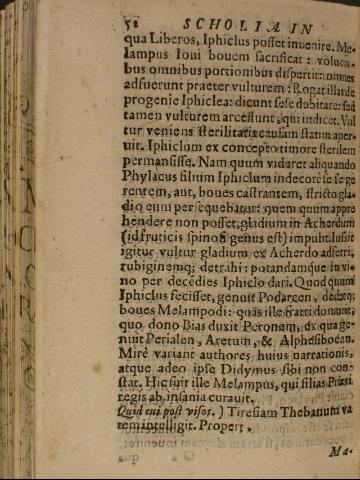 52 SCHOLIA IN
qua Liberos, Iphiclus posset inuenire. Me-
lampus Ioui bouem sacrificat: volucri-
bus omnibus portionibus dispertit: omnes
adfuerunt praeter vulturem: Rogat illas de
progenie Iphiclea: dicunt sese dubitare: sed
tamen vulturem arcessunt, qui indicet. Vul
tur veniens sterilitatis causam statim aper-
uit. Iphiclum ex concepto timore sterilem
permansisse. Nam quum videret aliquando
Phylacus filium Iphiclum indecorè se ge
rentem, aut, boues castrantem, stricto gla-
dio eum persequebatur: quem quum appre
hendere non posset, gladium in Acherdum
(id fruticis spinosi genus est) impulit. Iussit
igitur vultur gladium ex Acherdo adferri,
rubiginemq; detrahi: potandamque in vi-
no per decē dies Iphiclo dari. Quod quum
Iphiclus fecisset, genuit Podarcen, deditq;
boues Melampodi: quas ille fratri donauit,
quo dono Bias duxit Peronem, ex qua ge-
nuit Perialen, Aretum, & Alphesiboean.
Mirè variant authores huius narrationis,
atque adeo ipse Didymus sibi non con-
stat. Hic fuit ille Melampus, qui filias Prœti
regis ab insania curauit.
Quid cui post visos.) Tiresiam Thebanum va
tem intelligit. Propert.